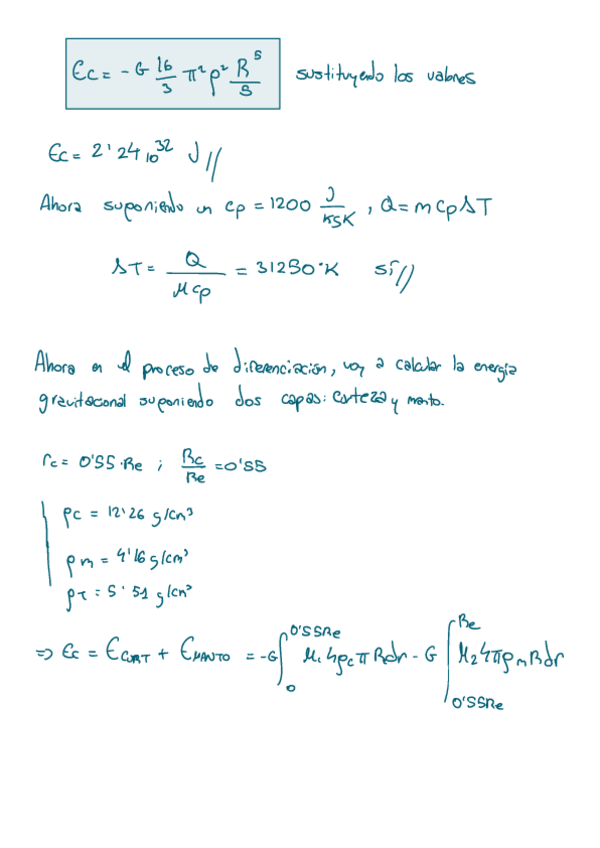 Ec = - G 16/3 π² ρ² R⁵/5 sustituyendo los valores
Ec = 2'24 10³² J //
Ahora suponiendo un cp = 1200 J/kgK , Q = m cp ΔT
ΔT = Q/Mcp = 31250 °K sí //
Ahora en el proceso de diferenciación, voy a calcular la energía
gravitacional suponiendo dos capas: corteza y manto.
rc = 0'55 · Re ; Rc/Re = 0'55
ρc = 12'26 g/cm³
ρm = 4'16 g/cm³
ρT = 5'51 g/cm³
⇒ Ec = ECORT + EMANTO = -G ∫₀^0'55Re M₁ 4ρc π R dr - G ∫_0'55Re^Re M₂ 4πρm R dr